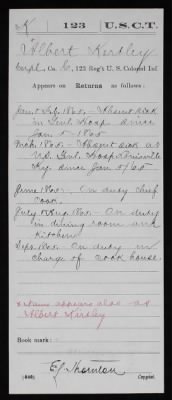 K 123 U.S.C.T.
Albert Kertley
Corpl., Co. C, 123 Reg't U. S. Colored Inf
Appears on Returns as follows:
Jan & Feb. 1865. Absent sick
in Genl Hosp since
Jan 5 1865
Mch. 1865. Absent sick at
U.S. Genl. Hosp Louisville
Ky. since Jan 5/65
June 1865. On duty chief
cook.
July & Aug. 1865. On duty
in dining room and
kitchen
Sept. 1865. On duty in
charge of cook house.
Name appears also as
Albert Kirtley
Book mark:
E J Thornton
(546) Copyist.